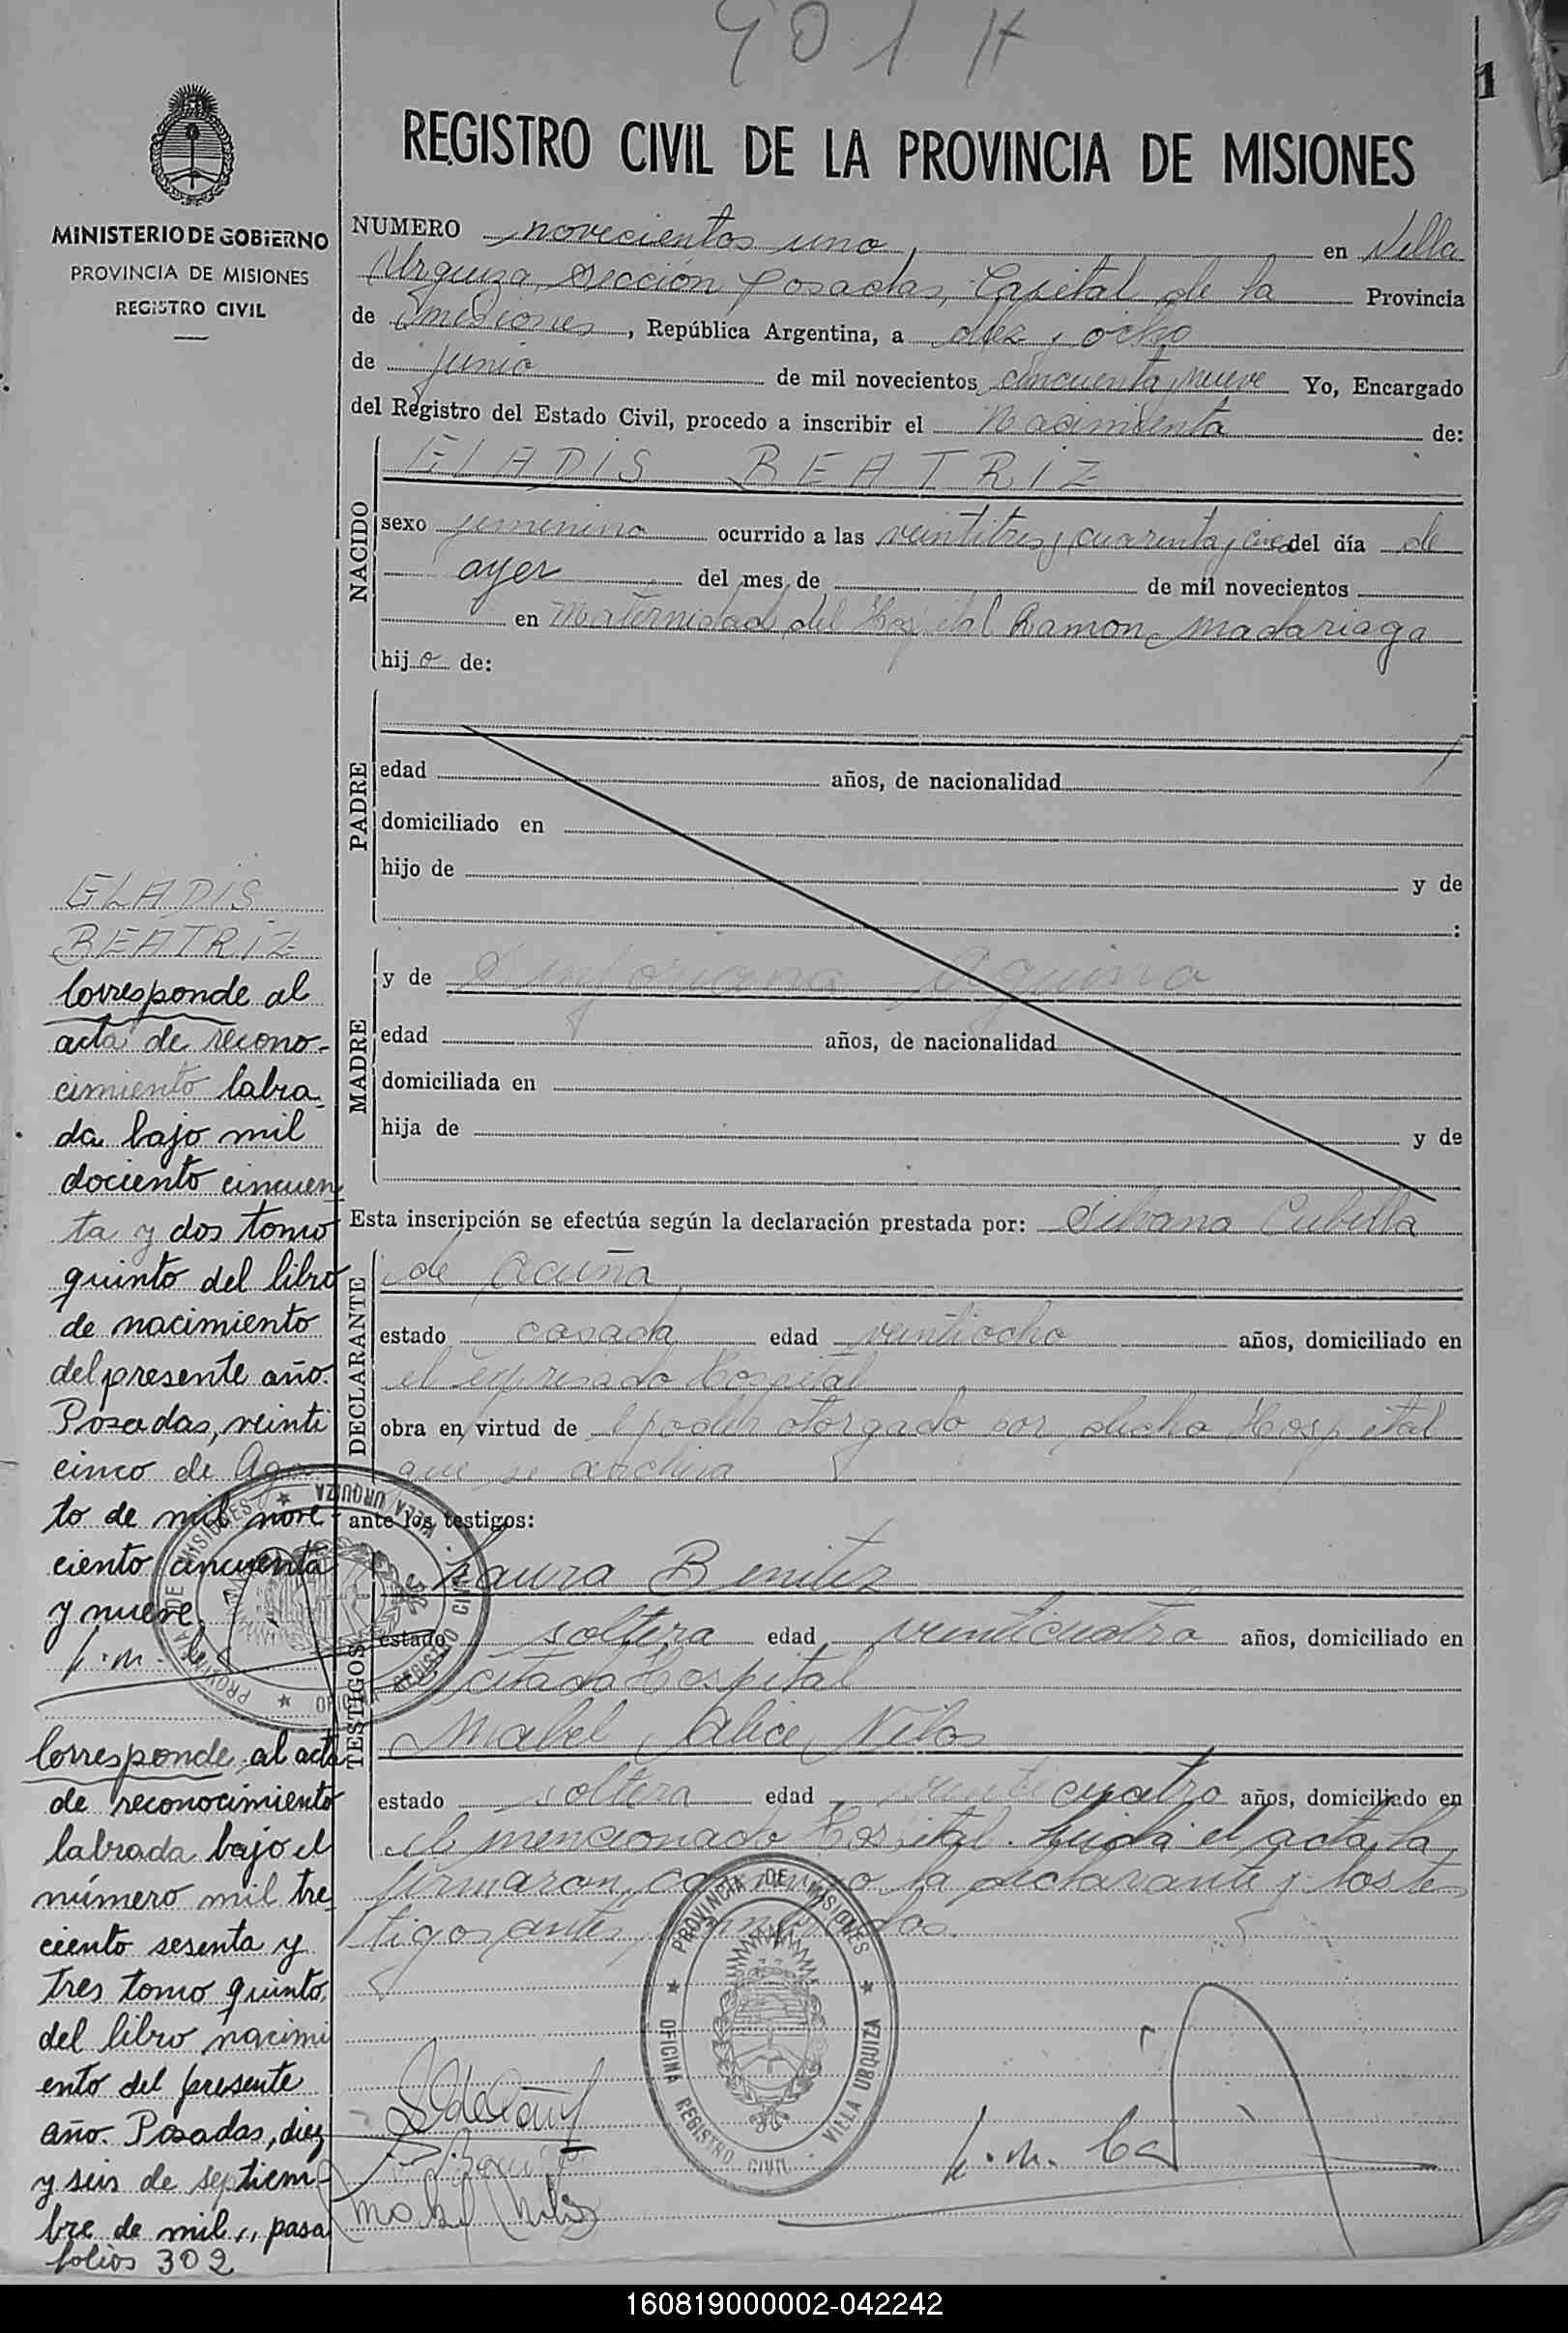 901 H
1
REGISTRO CIVIL DE LA PROVINCIA DE MISIONES
MINISTERIO DE GOBIERNO
PROVINCIA DE MISIONES
REGISTRO CIVIL
NUMERO novecientos uno, en Villa
Urquiza, Sección Posadas, Capital de la Provincia
de Misiones, República Argentina, a diez y ocho
de junio de mil novecientos cincuenta y nueve Yo, Encargado
del Registro del Estado Civil, procedo a inscribir el Nacimiento de:
NACIDO
ELADIS BEATRIZ
sexo femenino ocurrido a las veintitres y cuarenta y cinco del día de
ayer del mes de de mil novecientos
en Maternidad del Hospital Ramon Madariaga
hijo de:
PADRE
edad años, de nacionalidad
domiciliado en
hijo de y de
:
MADRE
y de Sinforiana Aquino
edad años, de nacionalidad
domiciliada en
hija de y de
Esta inscripción se efectúa según la declaración prestada por: Silvana Cubilla
DECLARANTE
de Acuña
estado casada edad veintiocho años, domiciliado en
el expresado Hospital
obra en virtud de l poder otorgado por dicho Hospital
que se archiva
ante los testigos:
TESTIGOS
Laura Benitez
estado soltera edad veinticuatro años, domiciliado en
citado Hospital
Mabel Alice Nilos
estado soltera edad veinticuatro años, domiciliado en
el mencionado Hospital. Leida el acta, la
firmaron conmigo la declarante y los tes
tigos antes nombrados.
ELADIS
BEATRIZ
Corresponde al
acta de recono-
cimiento labra-
da bajo mil
dociento cincuen
ta y dos tomo
quinto del libro
de nacimiento
del presente año.
Posadas, veinti
cinco de Agos
to de mil nove
ciento cincuenta
y nueve.
Corresponde al acta
de reconocimiento
labrada bajo el
número mil tre
ciento sesenta y
tres tomo quinto,
del libro nacimi
ento del presente
año. Posadas, diez
y seis de septiem-
bre de mil,, pasa
folios 302
PROVINCIA DE MISIONES
OFICINA REGISTRO CIVIL - VILLA URQUIZA
PROVINCIA DE MISIONES
OFICINA REGISTRO CIVIL - VILLA URQUIZA
160819000002-042242